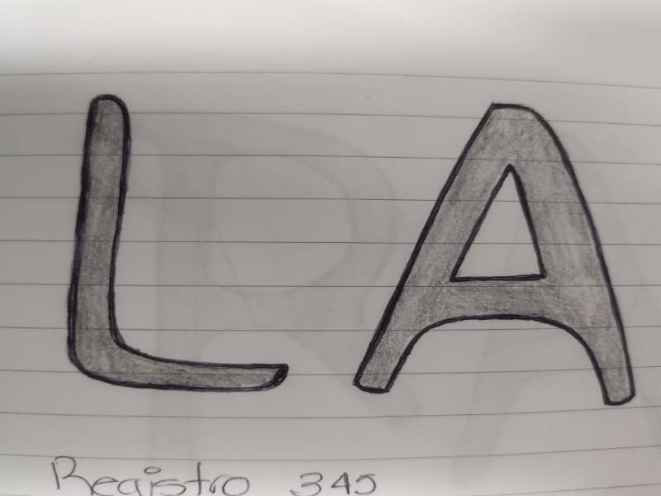 LA
Registro 345